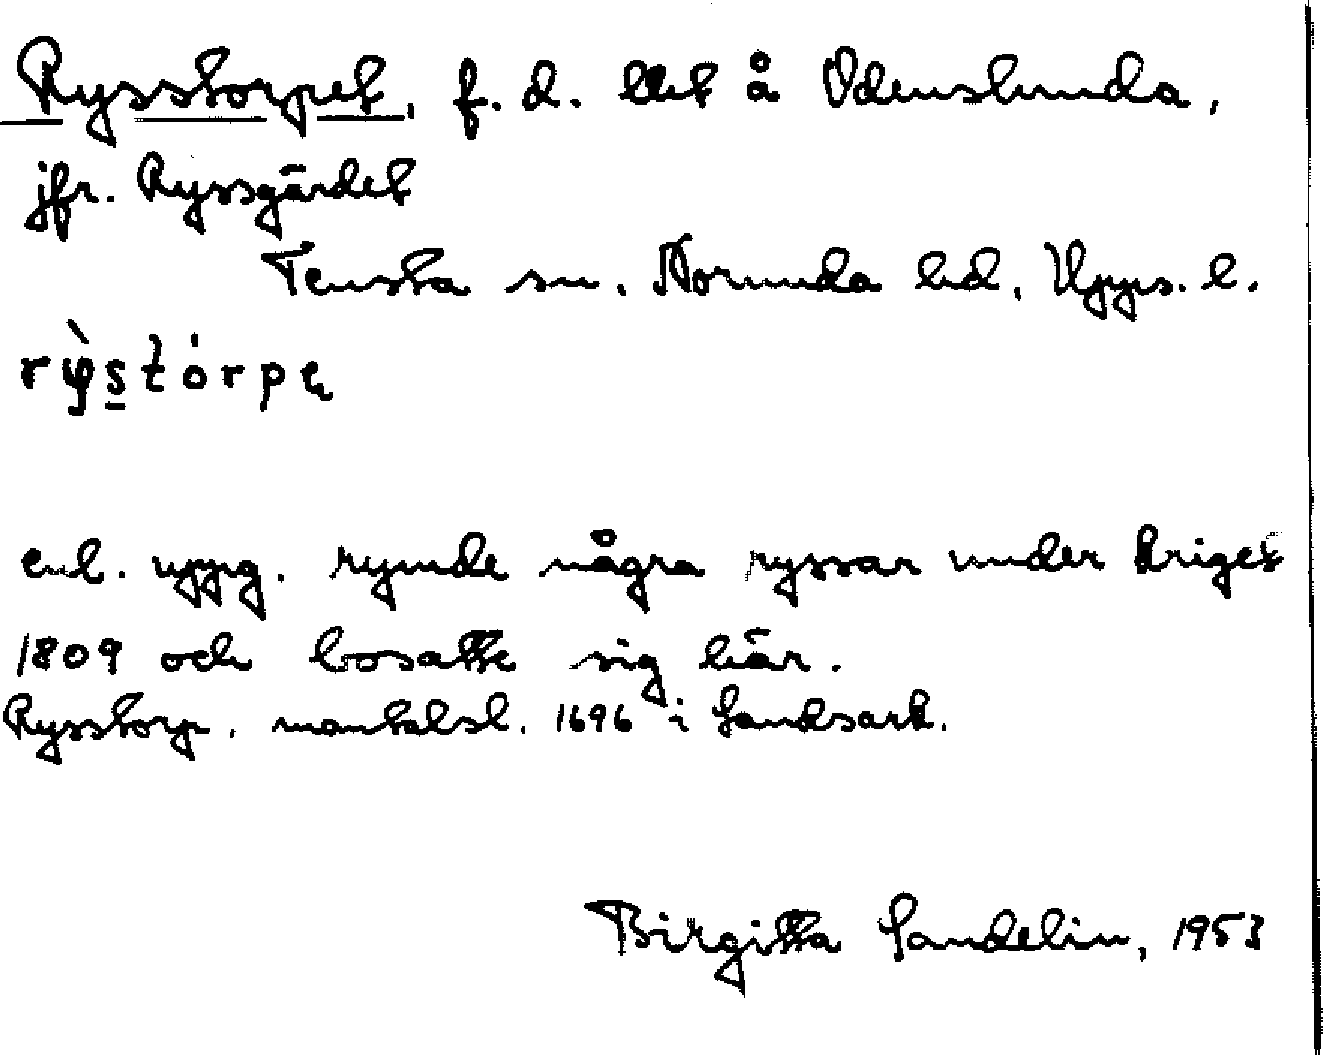 Rysstorpet, f. d. lht å Odenslunda,
jfr. Ryssgärdet
Tensta sn. Norunda hd, Upps. l.
enl. uppg. rymde några ryssar under kriget
1809 och bosatte sig här.
Rysstorp. mantalsl. 1696 i Landsark.
Birgitta Sandelin, 1953